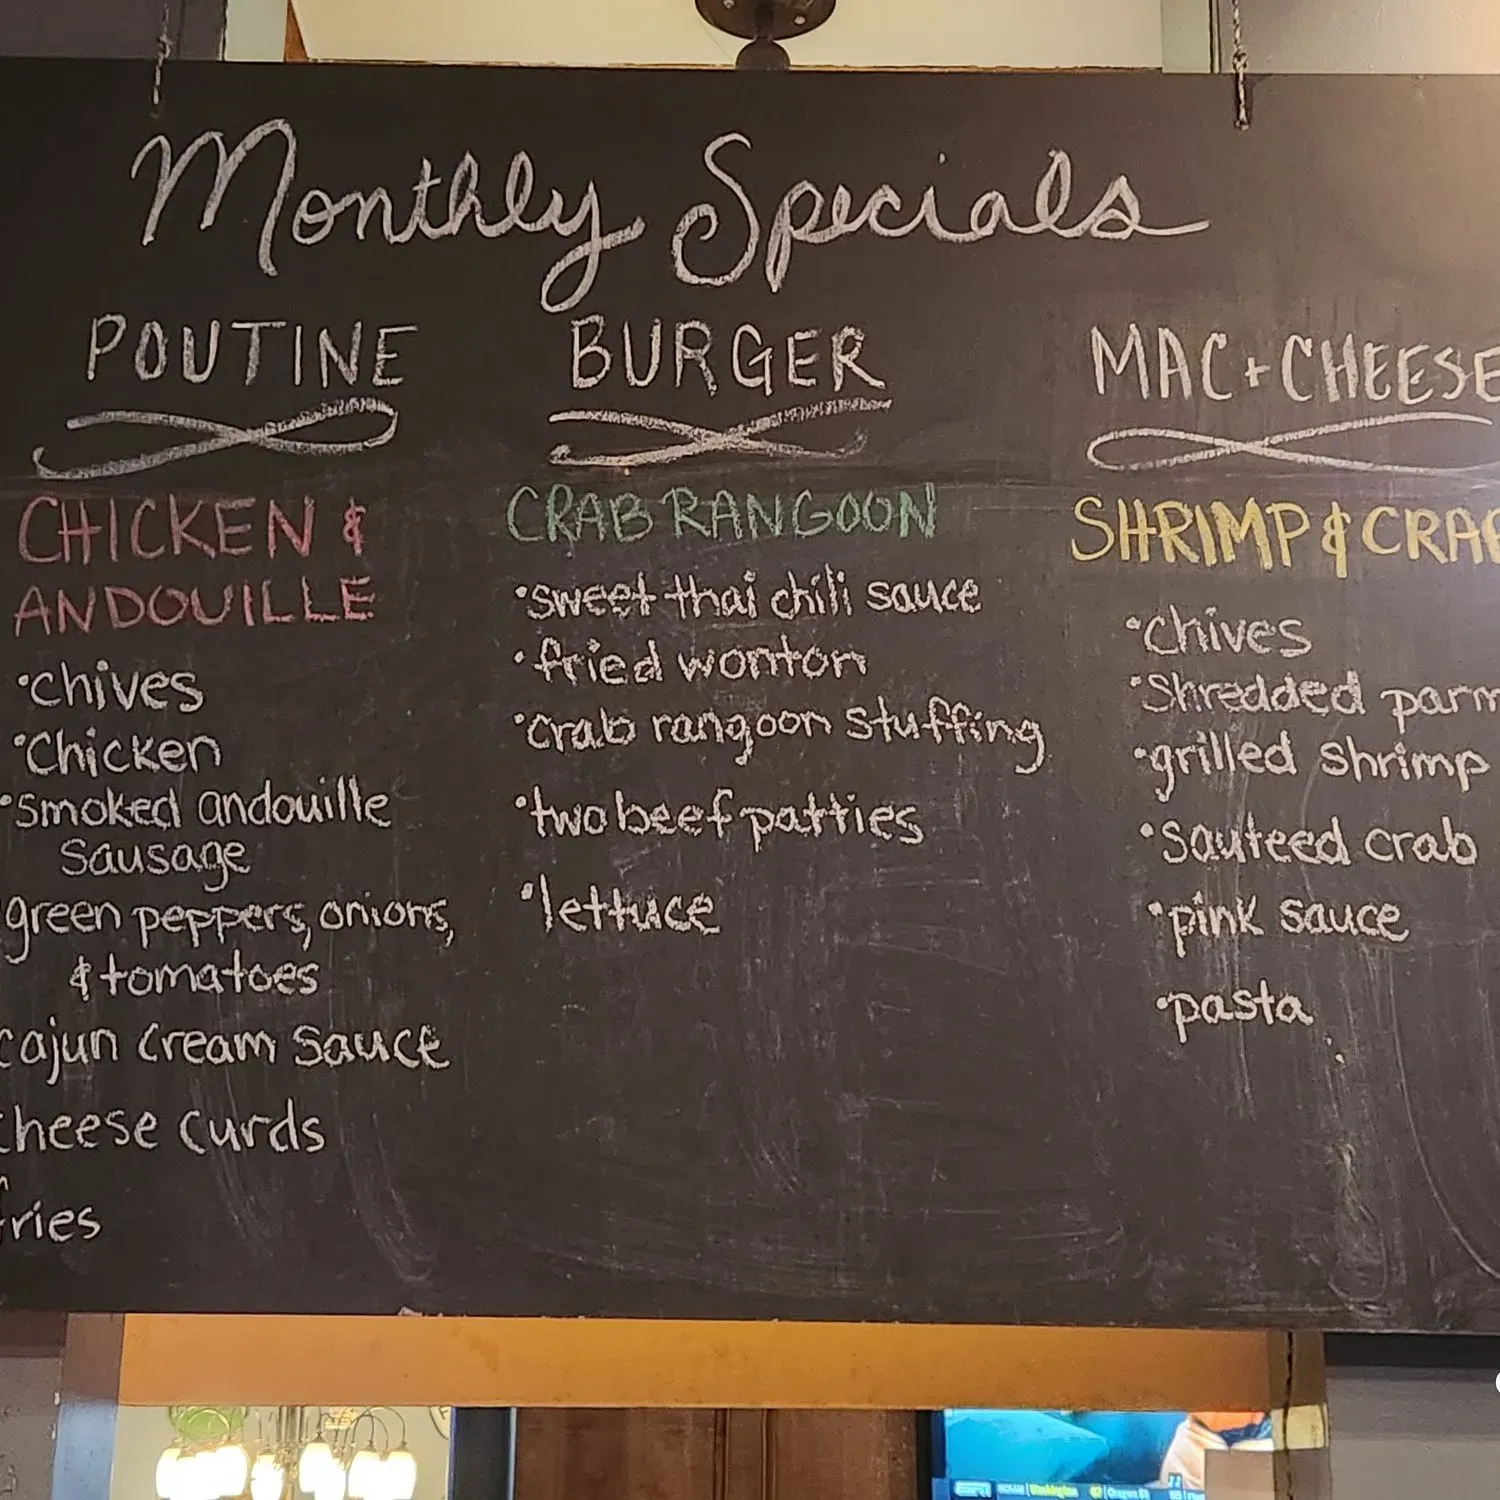 Monthly Specials
POUTINE
CHICKEN &
ANDOUILLE
•Chives
•Chicken
•Smoked andouille
Sausage
green peppers, onions,
& tomatoes
cajun cream sauce
cheese curds
fries
BURGER
CRAB RANGOON
•sweet thai chili sauce
•fried wonton
•crab rangoon stuffing
•two beef patties
•lettuce
MAC+CHEESE
SHRIMP & CRAB
•Chives
•Shredded parm
•grilled shrimp
•Sauteed crab
•pink sauce
•pasta
ESPN Washington